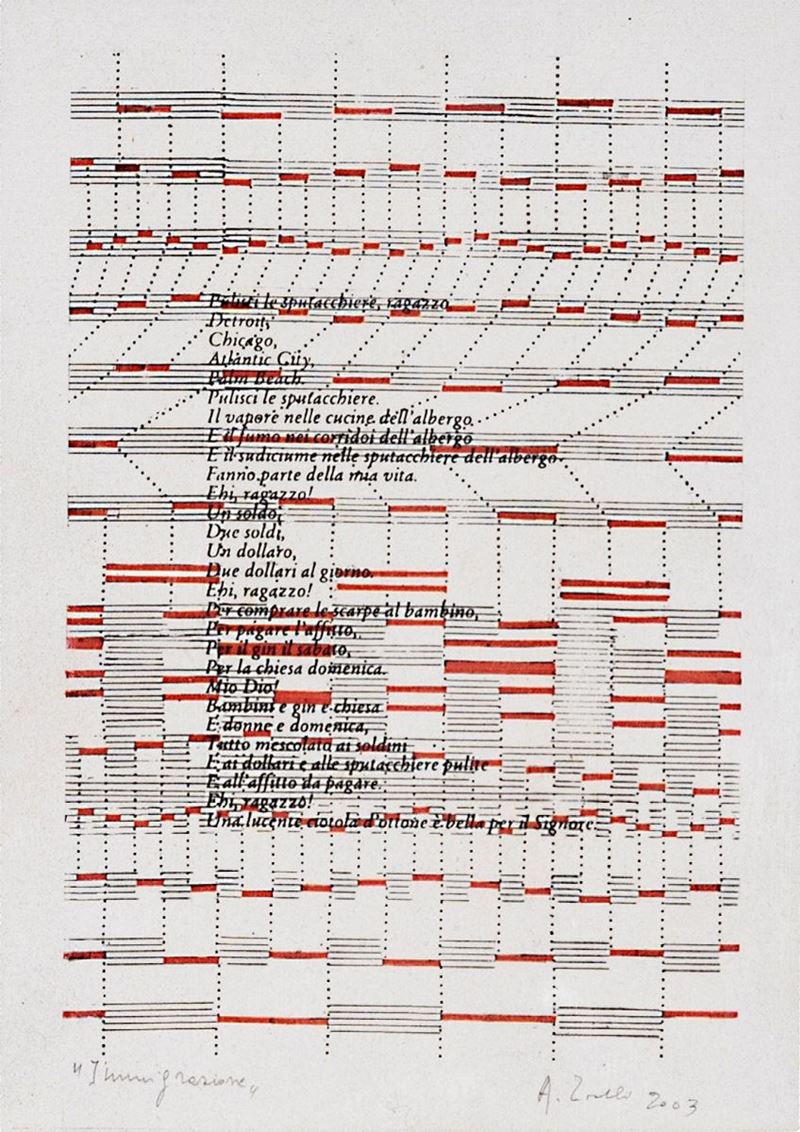 Pulisci le sputacchiere, ragazzo
Detroit,
Chicago,
Atlantic City,
Palm Beach.
Pulisci le sputacchiere.
Il vapore nelle cucine dell'albergo
E il fumo nei corridoi dell'albergo
E il sudiciume nelle sputacchiere dell'albergo
Fanno parte della mia vita.
Ehi, ragazzo!
Un soldo,
Due soldi,
Un dollaro,
Due dollari al giorno.
Ehi, ragazzo!
Per comprare le scarpe al bambino,
Per pagare l'affitto,
Per il gin il sabato,
Per la chiesa domenica.
Mio Dio!
Bambini e gin e chiesa
E donne e domenica,
Tutto mescolato ai soldini
E ai dollari e alle sputacchiere pulite
E all'affitto da pagare.
Ehi, ragazzo!
Una lucente ciotola d'ottone è bella per il Signore.
"Immigrazione"
A. 2003